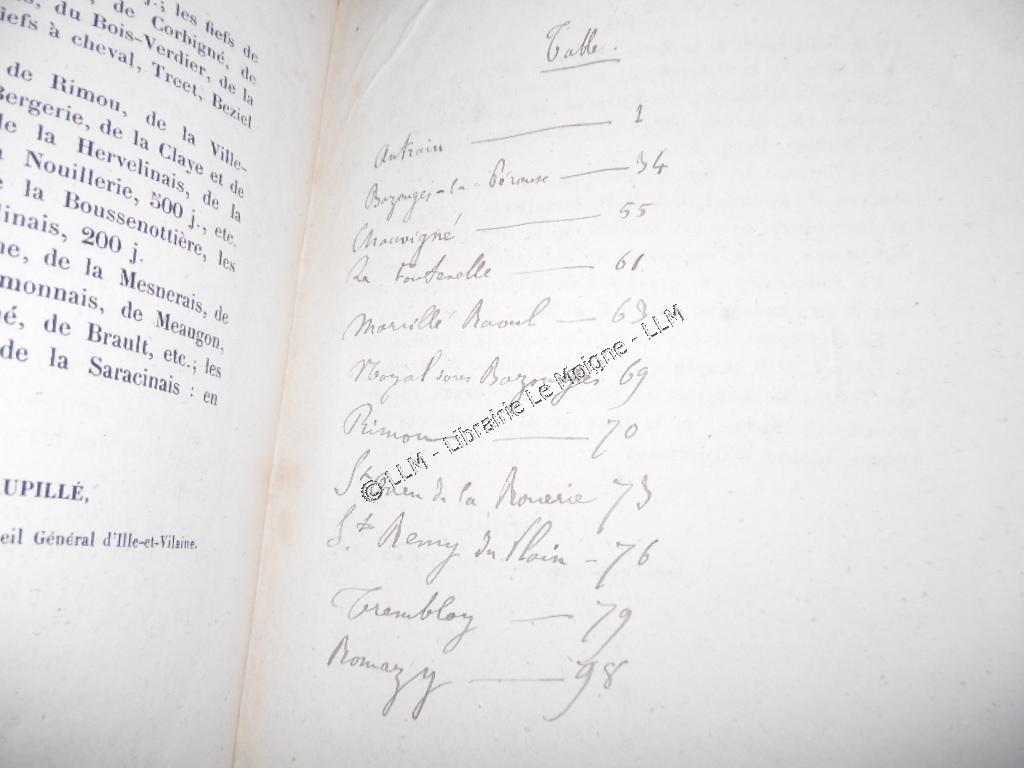 j.; les fiefs de
, de Corbigné, de
, du Bois-Verdier, de la
iefs à cheval, Treet, Beziel
de Rimou, de la Ville-
Bergerie, de la Claye et de
de la Hervelinais, de la
Nouillerie, 500 j., etc.
la Boussenottière, les
linais, 200 j.
ne, de la Mesnerais, de
monnais, de Meaugon,
né, de Brault, etc.; les
de la Saracinais : en
UPILLÉ,
eil Général d'Ille-et-Vilaine.
Table.
Antrain 1
Bazouges-la-Pérouse 34
Chauvigné 55
La Fontenelle 61
Marcillé Raoul 63
Noyal sous Bazouges 69
Rimou 70
St Ouen de la Rouerie 73
St Remy du Plain - 76
Tremblay 79
Romazy 98
©LLM - Librairie Le Moigne - LLM